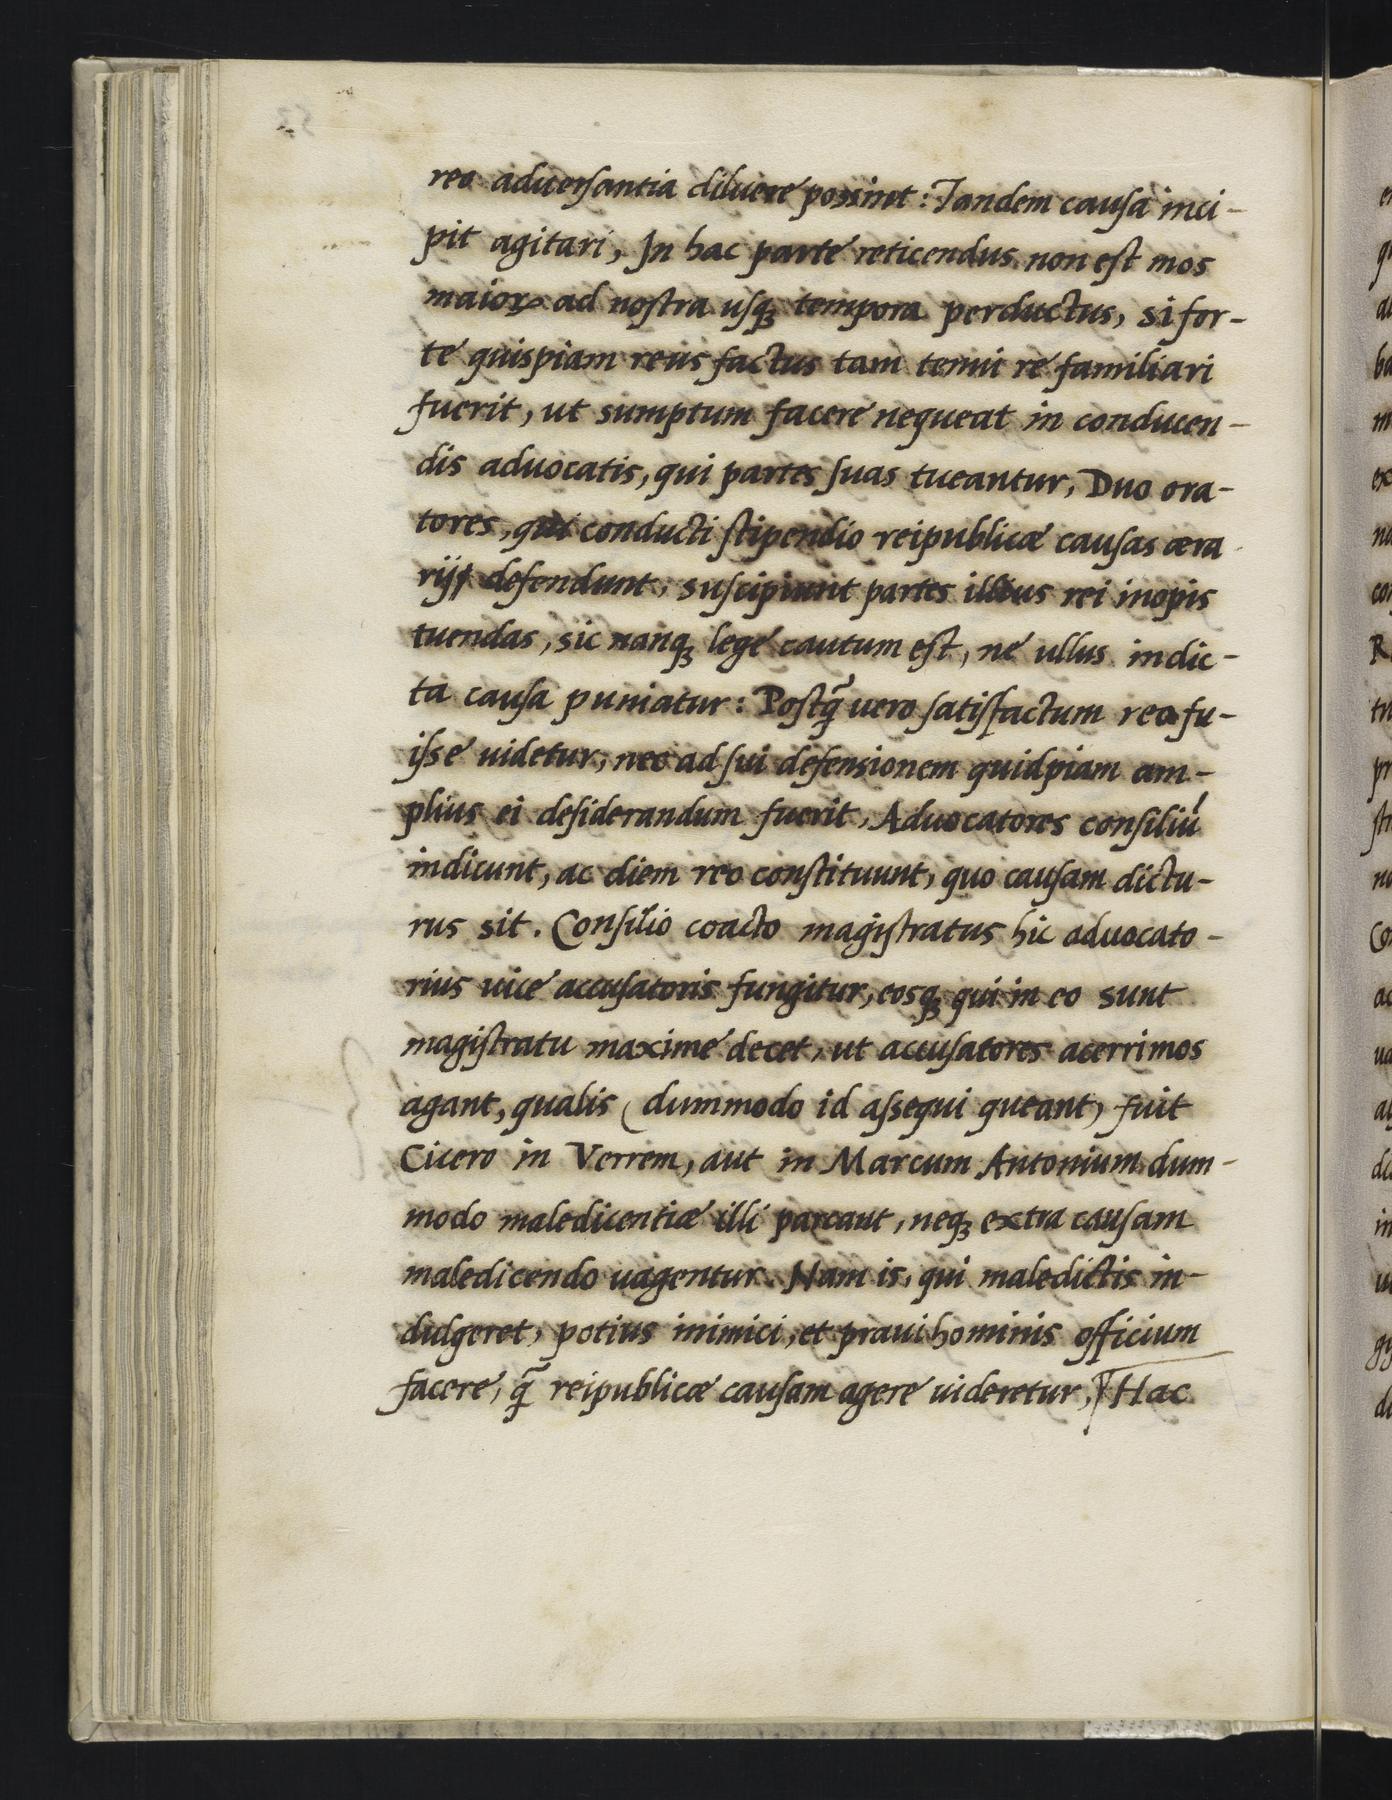 reo aduersantia diluere possint: Tandem causa inci-
pit agitari, In hac parte reticendus non est mos
maioꝝ ad nostra usqꝫ tempora perductus, si for-
te quispiam reus factus tam tenui re familiari
fuerit, ut sumptum facere nequeat in conducen-
dis aduocatis, qui partes suas tueantur, Duo ora-
tores, qui conducti stipendio reipublicæ causas æra
rij defendunt, suscipiunt partes illius rei inopis
tuendas, sic nanqꝫ lege cautum est, ne ullus indic-
ta causa puniatur: Postq̃ uero satisfactum reo fu-
isse uidetur, nec ad sui defensionem quidpiam am-
plius ei desiderandum fuerit, Aduocatores consiliū
indicunt, ac diem reo constituunt, quo causam dictu-
rus sit. Consilio coacto magistratus hic aduocato-
rius uice accusatoris fungitur, eosqꝫ qui in eo sunt
magistratu maxime decet, ut accusatores acerrimos
agant, qualis (dummodo id assequi queant) fuit
Cicero in Verrem, aut in Marcum Antonium dum-
modo maledicentiæ illi parcant, neqꝫ extra causam
maledicendo uagentur. Nam is, qui maledictis in-
dulgeret, potius inimici, et praui hominis officium
facere, q̃ reipublicæ causam agere uideretur, Hac